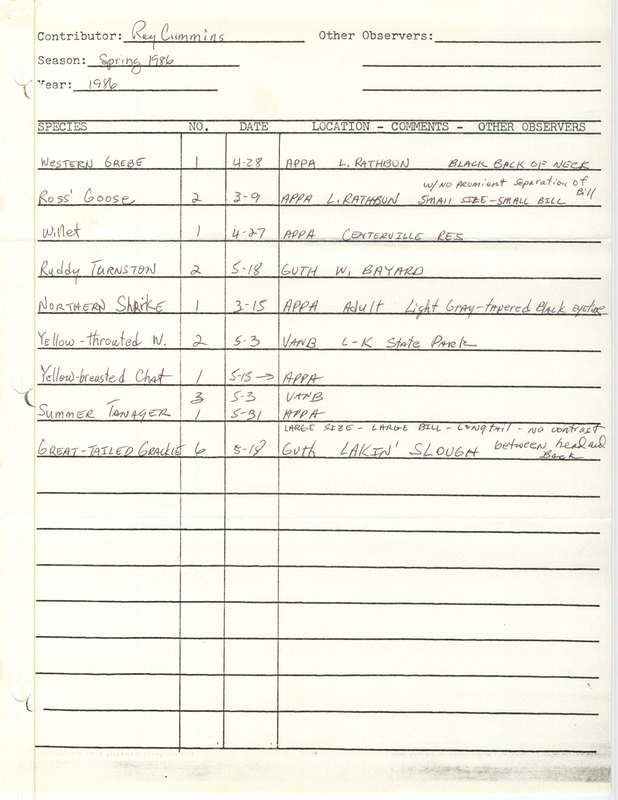 Contributor: Ray Cummins Other Observers:
Season: Spring 1986
Year: 1986
SPECIES NO. DATE LOCATION - COMMENTS - OTHER OBSERVERS
WESTERN GREBE 1 4-28 APPA L. RATHBUN BLACK BACK OF NECK
w/no promient separation of Bill
Ross' Goose 2 3-9 APPA L. RATHBUN SMALL SIZE-SMALL BILL
Willet 1 4-27 APPA CENTERVILLE RES
Ruddy TURNSTON 2 5-18 GUTH W. BAYARD
NORTHERN Shrike 1 3-15 APPA Adult Light Gray-tapered Black eyeline
Yellow-throated W. 2 5-3 VANB L-K State Park
Yellow-breasted Chat 1 5-15 → APPA
3 5-3 VANB
SUMMER TANAGER 1 5-31 APPA
LARGE SIZE - LARGE BILL - LONGtail - NO CONTRAST
GREAT-TAILED GRACKLE 6 5-18 GUTH LAKIN' SLOUGH between head and
Back